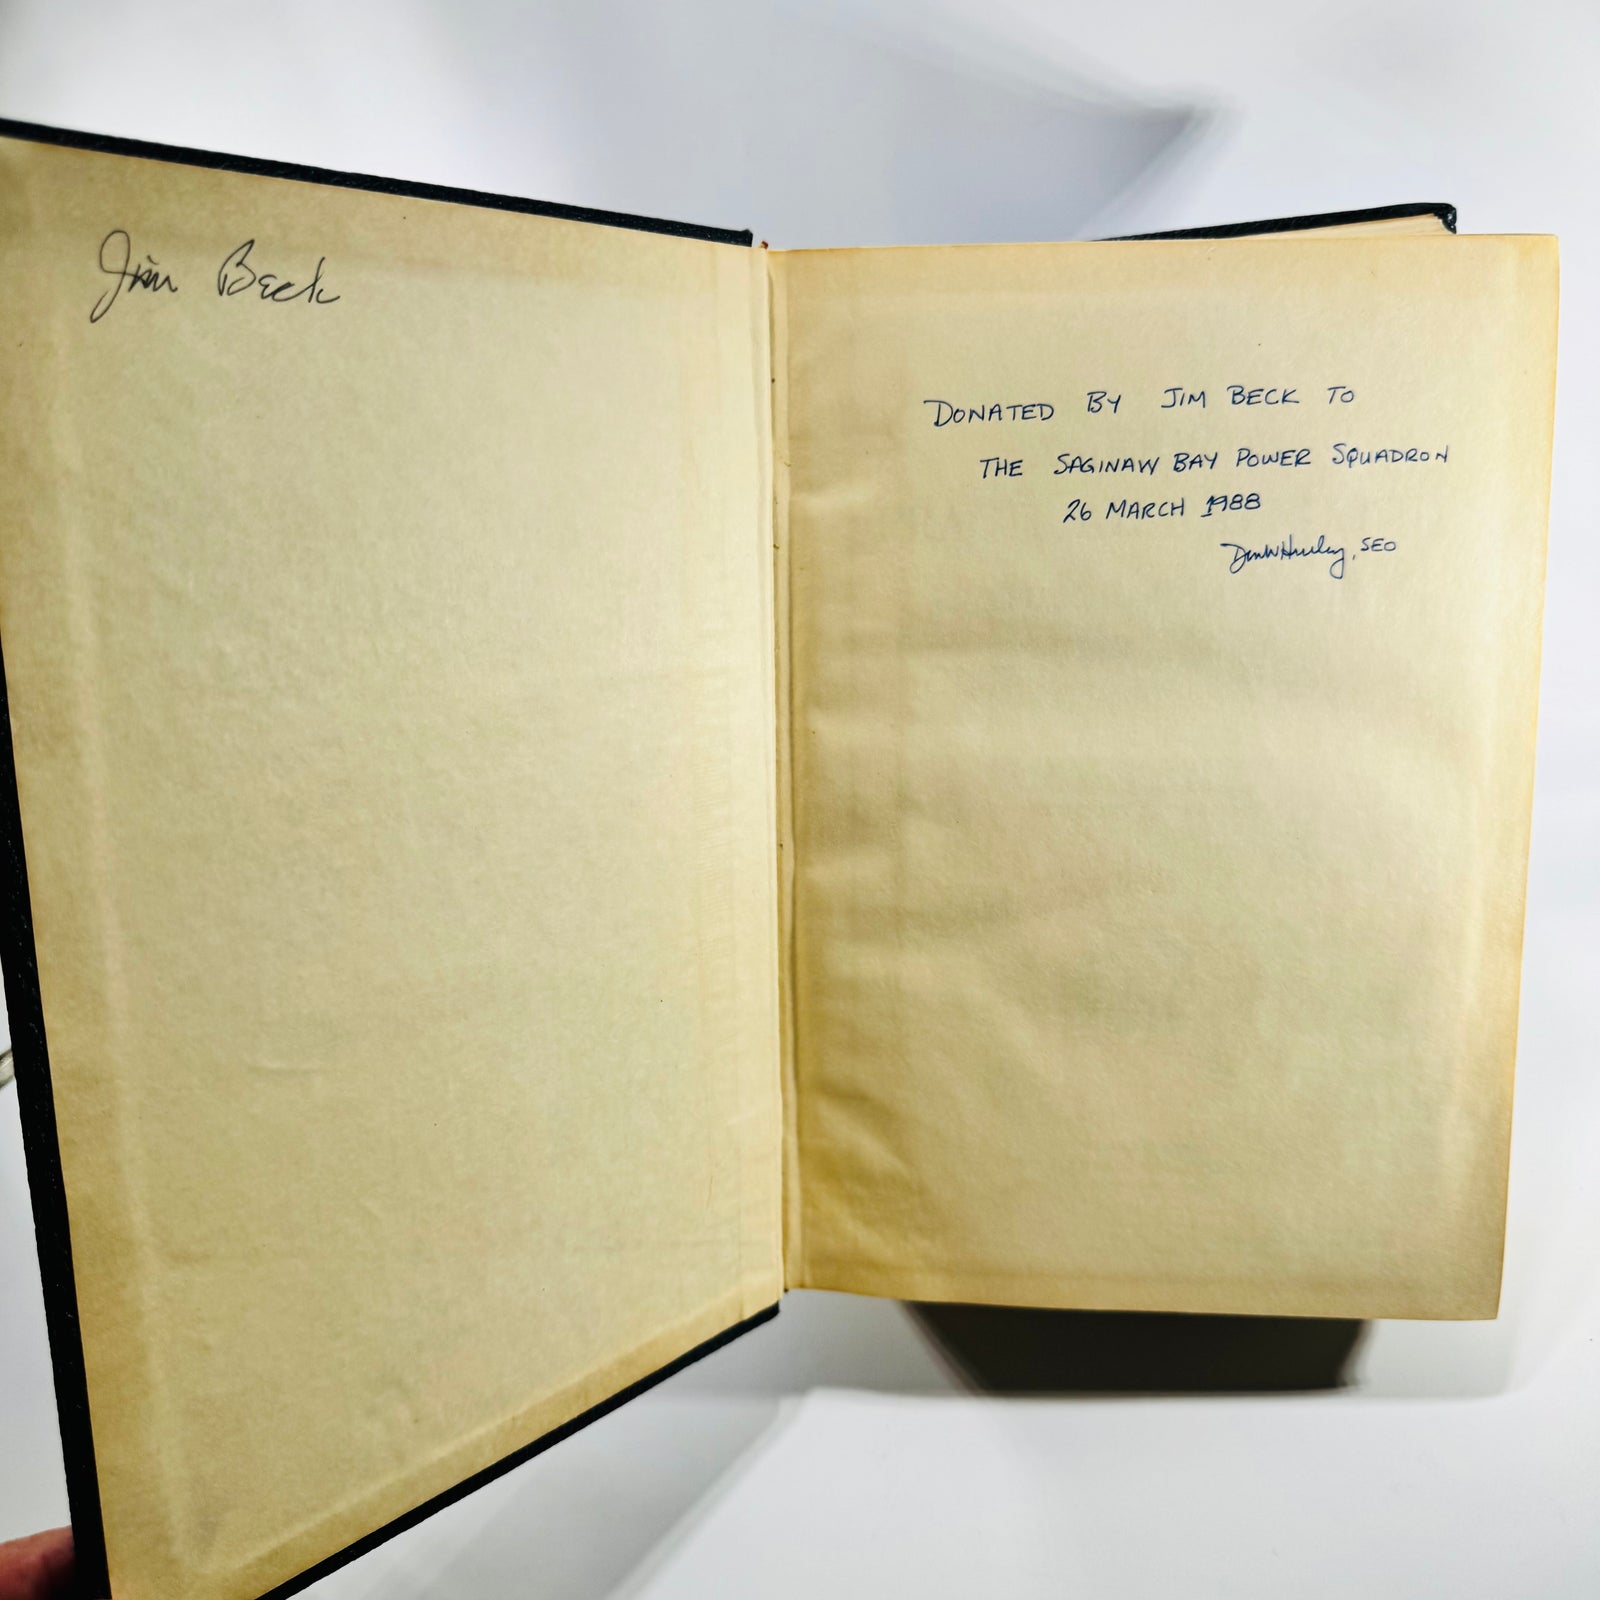 Jim Beck
DONATED BY JIM BECK TO
THE SAGINAW BAY POWER SQUADRON
26 MARCH 1988
, SEO